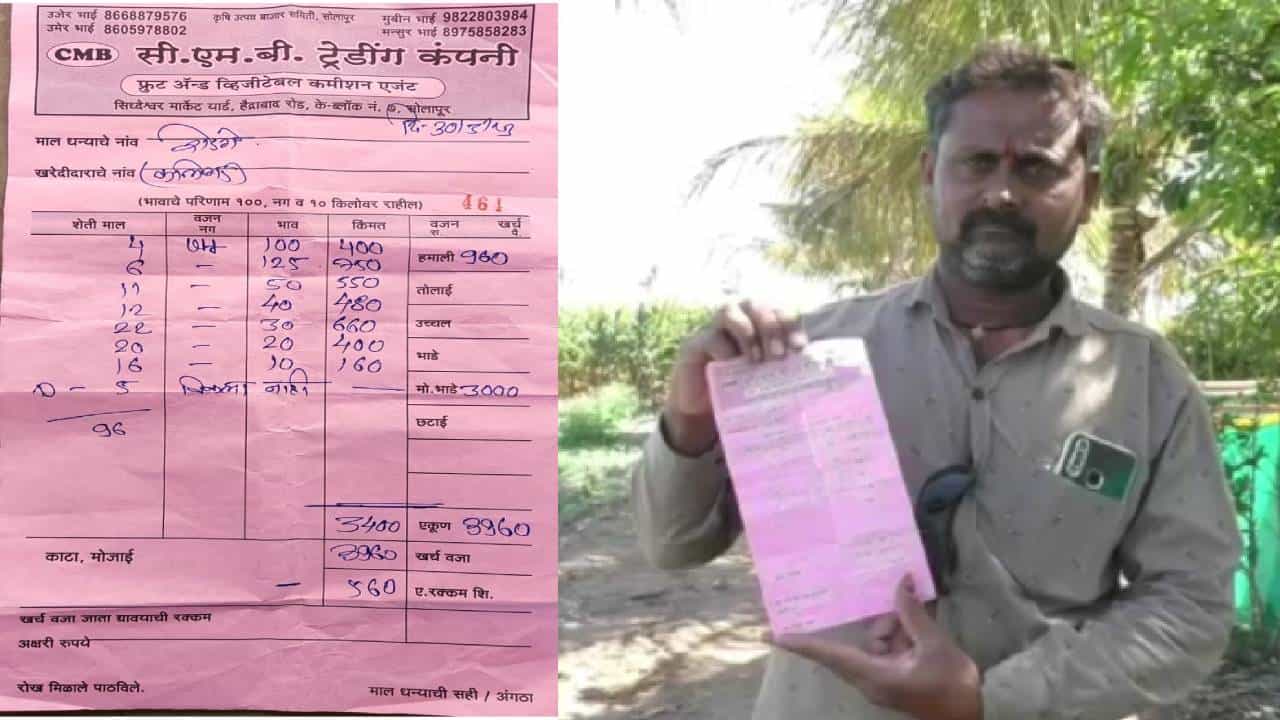 उजेर भाई 8668879576 कृषि उत्पन्न बाजार समिती, सोलापूर मुबीन भाई 9822803984
उमेर भाई 8605978802 मन्सुर भाई 8975858283
CMB सी.एम.बी. ट्रेडींग कंपनी
फ्रुट ॲन्ड व्हिजीटेबल कमीशन एजंट
सिध्देश्वर मार्केट यार्ड, हैद्राबाद रोड, के-ब्लॉक नं. सोलापूर
माल धन्याचे नांव
खरेदीदाराचे नांव
(भावाचे परिणाम १००, नग व १० किलोवर राहील) 461
शेती माल वजन नग भाव किंमत वजन रु. खर्च पै.
4 100 400 हमाली 960
6 – 125 750
11 – 50 550 तोलाई
12 – 40 480
22 – 30 660 उच्चल
20 – 20 400
16 – 10 160 भाडे
5 नाही — मो.भाडे 3000
96 छटाई
3400 एकूण 3960
काटा, मोजाई 3960 खर्च वजा
– 560 ए.रक्कम शि.
खर्च वजा जाता द्यावयाची रक्कम
अक्षरी रुपये
रोख मिळाले पाठविले. माल धन्याची सही / अंगठा